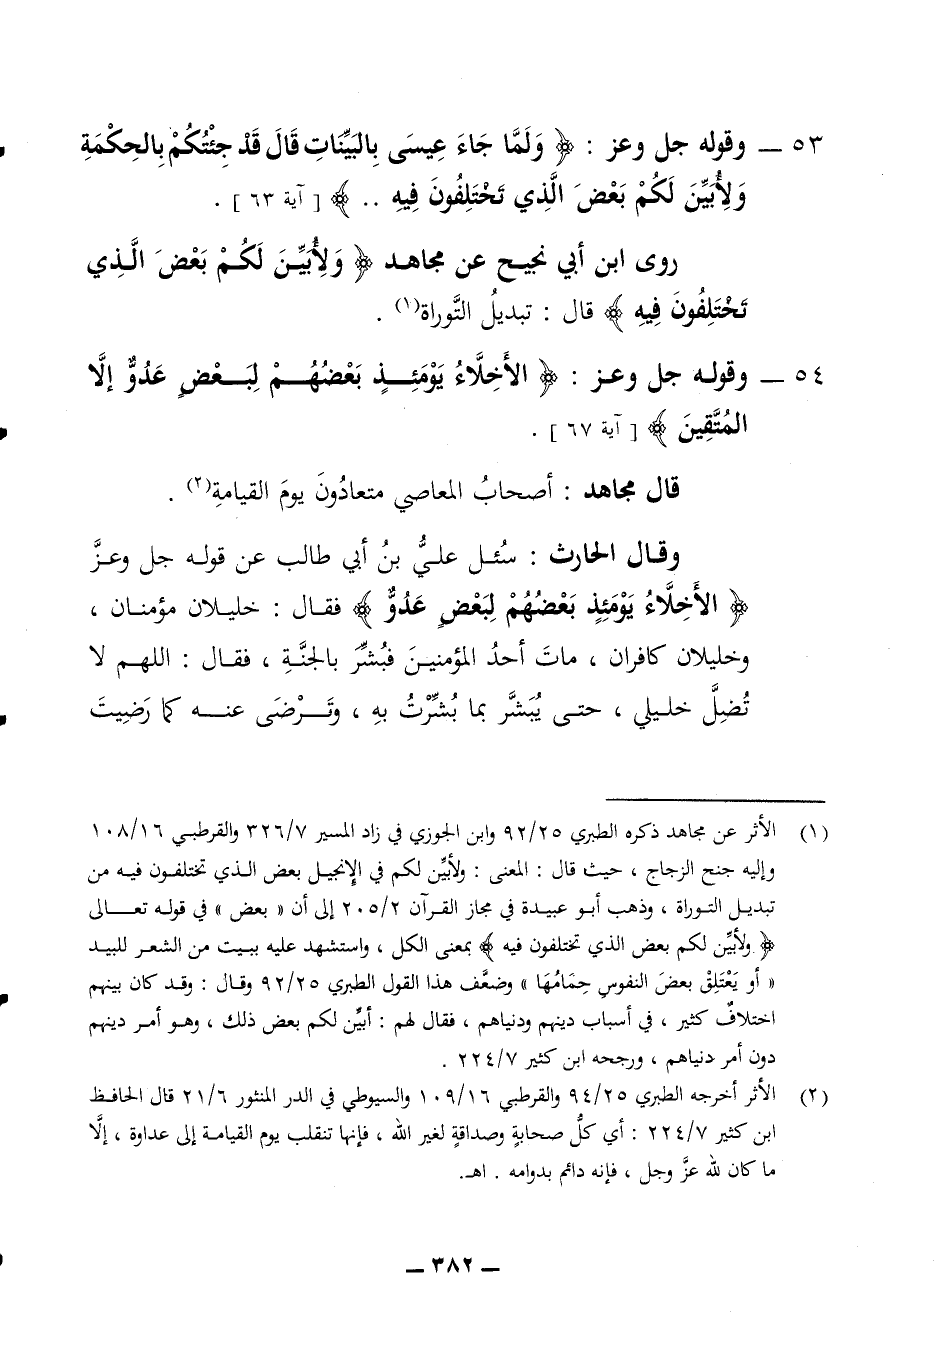 ٥٣ ــ وقوله جل وعز : ﴿ وَلَمَّا جَاءَ عِيسَى بِالبَيِّنَاتِ قَالَ قَدْ جِئْتُكُمْ بِالحِكْمَةِ
وَلِأُبَيِّنَ لَكُمْ بَعْضَ الَّذِي تَخْتَلِفُونَ فِيهِ .. ﴾ [ آية ٦٣ ] .
روى ابن أبي نجيح عن مجاهد ﴿ وَلِأُبَيِّنَ لَكُمْ بَعْضَ الَّذِي
تَخْتَلِفُونَ فِيهِ ﴾ قال : تبديلُ التَّوراة(١) .
٥٤ ــ وقوله جل وعز : ﴿ الأَخِلَّاءُ يَوْمَئِذٍ بَعْضُهُمْ لِبَعْضٍ عَدُوٌّ إلَّا
المُتَّقِينَ ﴾ [ آية ٦٧ ] .
قال مجاهد : أصحابُ المعاصي متعادُونَ يومَ القيامةِ(٢) .
وقال الحارث : سُئل عليُّ بنُ أبي طالب عن قوله جل وعزَّ
﴿ الأَخِلَّاءُ يَوْمَئِذٍ بَعْضُهُمْ لِبَعْضٍ عَدُوٌّ ﴾ فقال : خليلان مؤمنان ،
وخليلان كافران ، ماتَ أحدُ المؤمنينَ فبُشِّرَ بالجنَّةِ ، فقال : اللهم لا
تُضِلَّ خليلي ، حتى يُبَشَّر بما بُشِّرْتُ بهِ ، وتَرْضَى عنه كما رَضِيتَ
(١) الأثر عن مجاهد ذكره الطبري ٩٢/٢٥ وابن الجوزي في زاد المسير ٣٢٦/٧ والقرطبي ١٠٨/١٦
وإليه جنح الزجاج ، حيث قال : المعنى : ولأبيِّن لكم في الإنجيل بعض الذي تختلفون فيه من
تبديل التوراة ، وذهب أبو عبيدة في مجاز القرآن ٢٠٥/٢ إلى أن « بعض » في قوله تعالى
﴿ ولأبيِّن لكم بعض الذي تختلفون فيه ﴾ بمعنى الكل ، واستشهد عليه ببيت من الشعر للبيد
« أو يَعْتَلِقْ بعضَ النفوسِ حِمَامُهَا » وضعَّف هذا القول الطبري ٩٢/٢٥ وقال : وقد كان بينهم
اختلافٌ كثير ، في أسباب دينهم ودنياهم ، فقال لهم : أبيِّن لكم بعض ذلك ، وهو أمر دينهم
دون أمر دنياهم ، ورجحه ابن كثير ٢٢٤/٧ .
(٢) الأثر أخرجه الطبري ٩٤/٢٥ والقرطبي ١٠٩/١٦ والسيوطي في الدر المنثور ٢١/٦ قال الحافظ
ابن كثير ٢٢٤/٧ : أي كلُّ صحابةٍ وصداقةٍ لغير الله ، فإنها تنقلب يوم القيامة إلى عداوة ، إلَّا
ما كان لله عزَّ وجل ، فإنه دائم بدوامه . اهـ.
ــ ٣٨٢ ــ